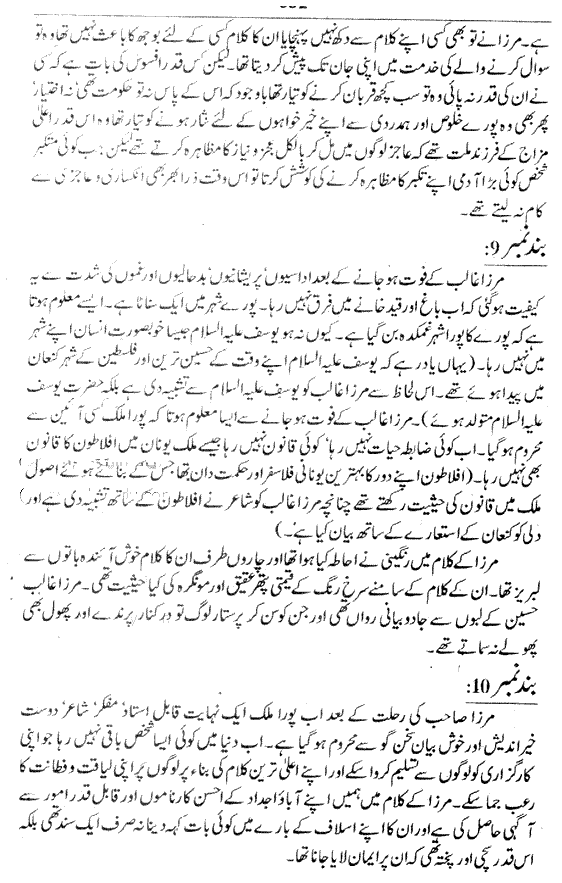 ہے۔ مرزا نے تو بھی کسی اپنے کلام سے دکھ نہیں پہنچایا ان کا کلام کسی کے لئے بوجھ کا باعث نہیں تھا وہ تو
سوال کرنے والے کی خدمت میں اپنی جان تک پیش کر دیتا تھا۔ لیکن کس قدر افسوس کی بات ہے کہ کسی
نے ان کی قدر نہ پائی وہ تو سب کچھ قربان کرنے کو تیار تھا باوجود کہ اس کے پاس نہ تو حکومت تھی نہ اختیار
پھر بھی وہ پورے خلوص اور ہمدردی سے اپنے خیر خواہوں کے لئے نثار ہونے کو تیار تھا وہ اس قدر اعلیٰ
مزاج کے فرزند ملت تھے کہ عاجز لوگوں میں مل کر بالکل عجز و نیاز کا مظاہرہ کرتے تھے لیکن جب کوئی متکبر
شخص کوئی بڑا آدمی اپنے تکبر کا مظاہرہ کرنے کی کوشش کرتا تو اس وقت ذرا بھر بھی انکساری و عاجزی سے
کام نہ لیتے تھے۔
بند نمبر 9:
مرزا غالب کے فوت ہو جانے کے بعد اداسیوں پریشانیوں بدحالیوں اور غموں کی شدت سے یہ
کیفیت ہو گئی کہ اب باغ اور قید خانے میں فرق نہیں رہا۔ پورے شہر میں ایک سناٹا ہے۔ ایسے معلوم ہوتا
ہے کہ پورے کا پورا شہر غمکدہ بن گیا ہے۔ کیوں نہ ہو یوسف علیہ السلام جیسا خوبصورت انسان اپنے شہر
میں نہیں رہا۔ (یہاں یاد رہے کہ یوسف علیہ السلام اپنے وقت کے حسین ترین اور فلسطین کے شہر کنعان
میں پیدا ہوئے تھے۔ اس لحاظ سے مرزا غالب کو یوسف علیہ السلام سے تشبیہ دی ہے بلکہ حضرت یوسف
علیہ السلام متولد ہوئے)۔ مرزا غالب کے فوت ہو جانے سے ایسا معلوم ہوتا کہ پورا ملک کسی آئین سے
محروم ہو گیا۔ اب کوئی ضابطہ حیات نہیں رہا' کوئی قانون نہیں رہا جیسے ملک یونان میں افلاطون کا قانون
بھی نہیں رہا۔ (افلاطون اپنے دور کا بہترین یونانی فلاسفر اور حکمت دان تھا جس کے بنائے ہوئے اصول
ملک میں قانون کی حیثیت رکھتے تھے چنانچہ مرزا غالب کو شاعر نے افلاطون کے ساتھ تشبیہ دی ہے اور
دلی کو کنعان کے استعارے کے ساتھ بیان کیا ہے۔)
مرزا کے کلام میں رنگینی نے احاطہ کیا ہوا تھا اور چاروں طرف ان کا کلام خوش آئندہ باتوں سے
لبریز تھا۔ ان کے کلام کے سامنے سرخ رنگ کے قیمتی پتھر عقیق اور مونگرہ کی کیا حیثیت تھی۔ مرزا غالب
حسین کے لبوں سے جادو بیانی رواں تھی اور جن کو سن کر پرستار لوگ تو در کنار پرندے اور پھول بھی
پھولے نہ سماتے تھے۔
بند نمبر 10:
مرزا صاحب کی رحلت کے بعد اب پورا ملک ایک نہایت قابل استاد' مفکر' شاعر' دوست
خیر اندیش اور خوش بیان سخن گو سے محروم ہو گیا ہے۔ اب دنیا میں کوئی ایسا شخص باقی نہیں رہا جو اپنی
کارگزاری کو لوگوں سے تسلیم کروا سکے اور اپنے اعلیٰ ترین کلام کی بناء پر لوگوں پر اپنی لیاقت و فطانت کا
رعب جما سکے۔ مرزا کے کلام میں ہمیں اپنے آباؤ اجداد کے احسن کارناموں اور قابل قدر امور سے
آگہی حاصل کی ہے اور ان کا اپنے اسلاف کے بارے میں کوئی بات کہہ دینا نہ صرف ایک سند تھی بلکہ
اس قدر سچی اور پختہ تھی کہ ان پر ایمان لایا جانا تھا۔